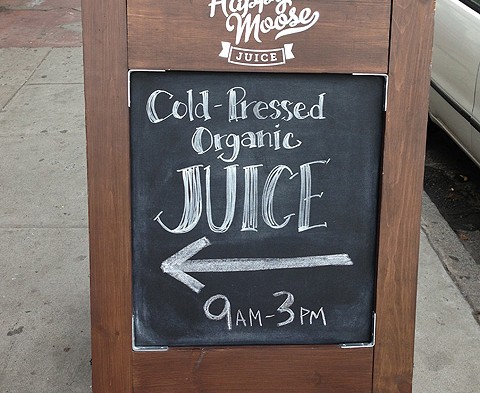 Happy
Moose
JUICE
Cold-Pressed
Organic
JUICE
9AM-3PM